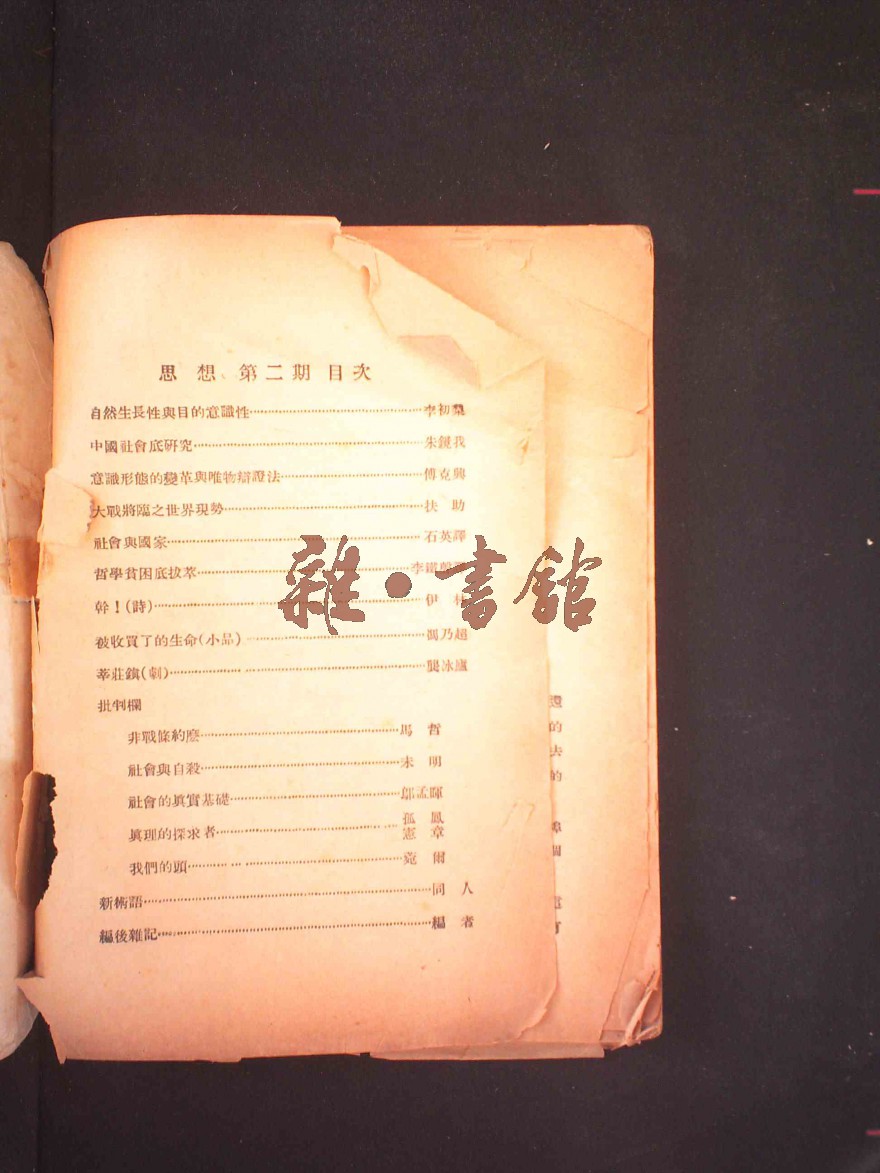 思想 第二期 目次
自然生長性與目的意識性……李初梨
中國社會底研究……朱鏡我
意識形態的變革與唯物辯證法……傅克興
大戰將臨之世界現勢……扶助
社會與國家……石英譯
哲學貧困底拔萃……李鐵聲
幹！(詩)……伊
被收買了的生命(小品)……馮乃超
莘莊鎮(劇)……龔冰廬
批判欄
非戰條約麽……馬哲
社會與自殺……未明
社會的眞實基礎……鄔孟暉
眞理的探求者……孤鳳 憲章
我們的頭……菀爾
新術語……同人
編後雜記……編者
雜·書館
還
的
去
的
個